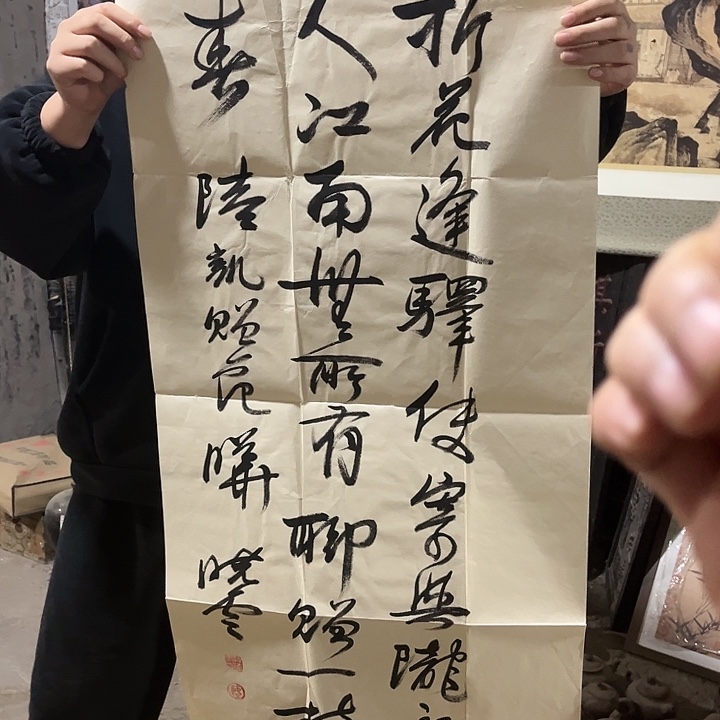 折花逢驛使寄與隴
人江南無所有聊贈一枝
春 陸凱贈范曄 曉雲